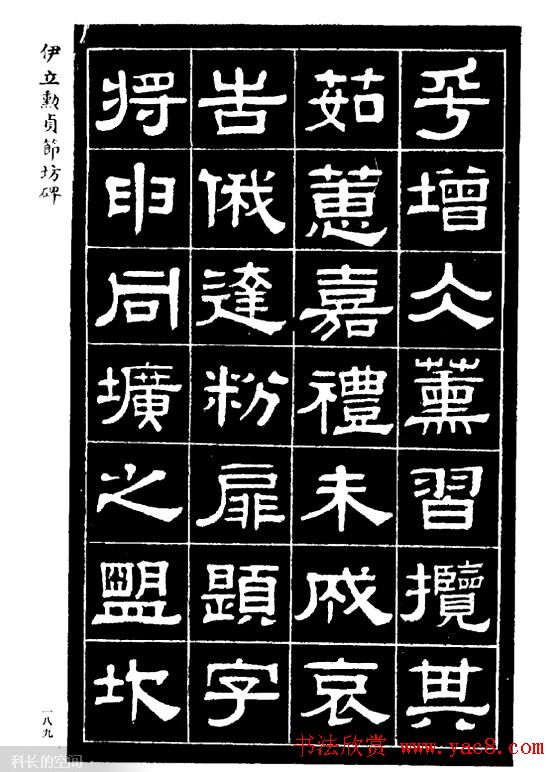 乎增仌薰習攬其
茹蕙嘉禮未成哀
告俄達粉扉題字
將申同壙之盟坎
伊立勳貞節坊碑
一八九
书法欣赏 www.yac8.com
科长的空间